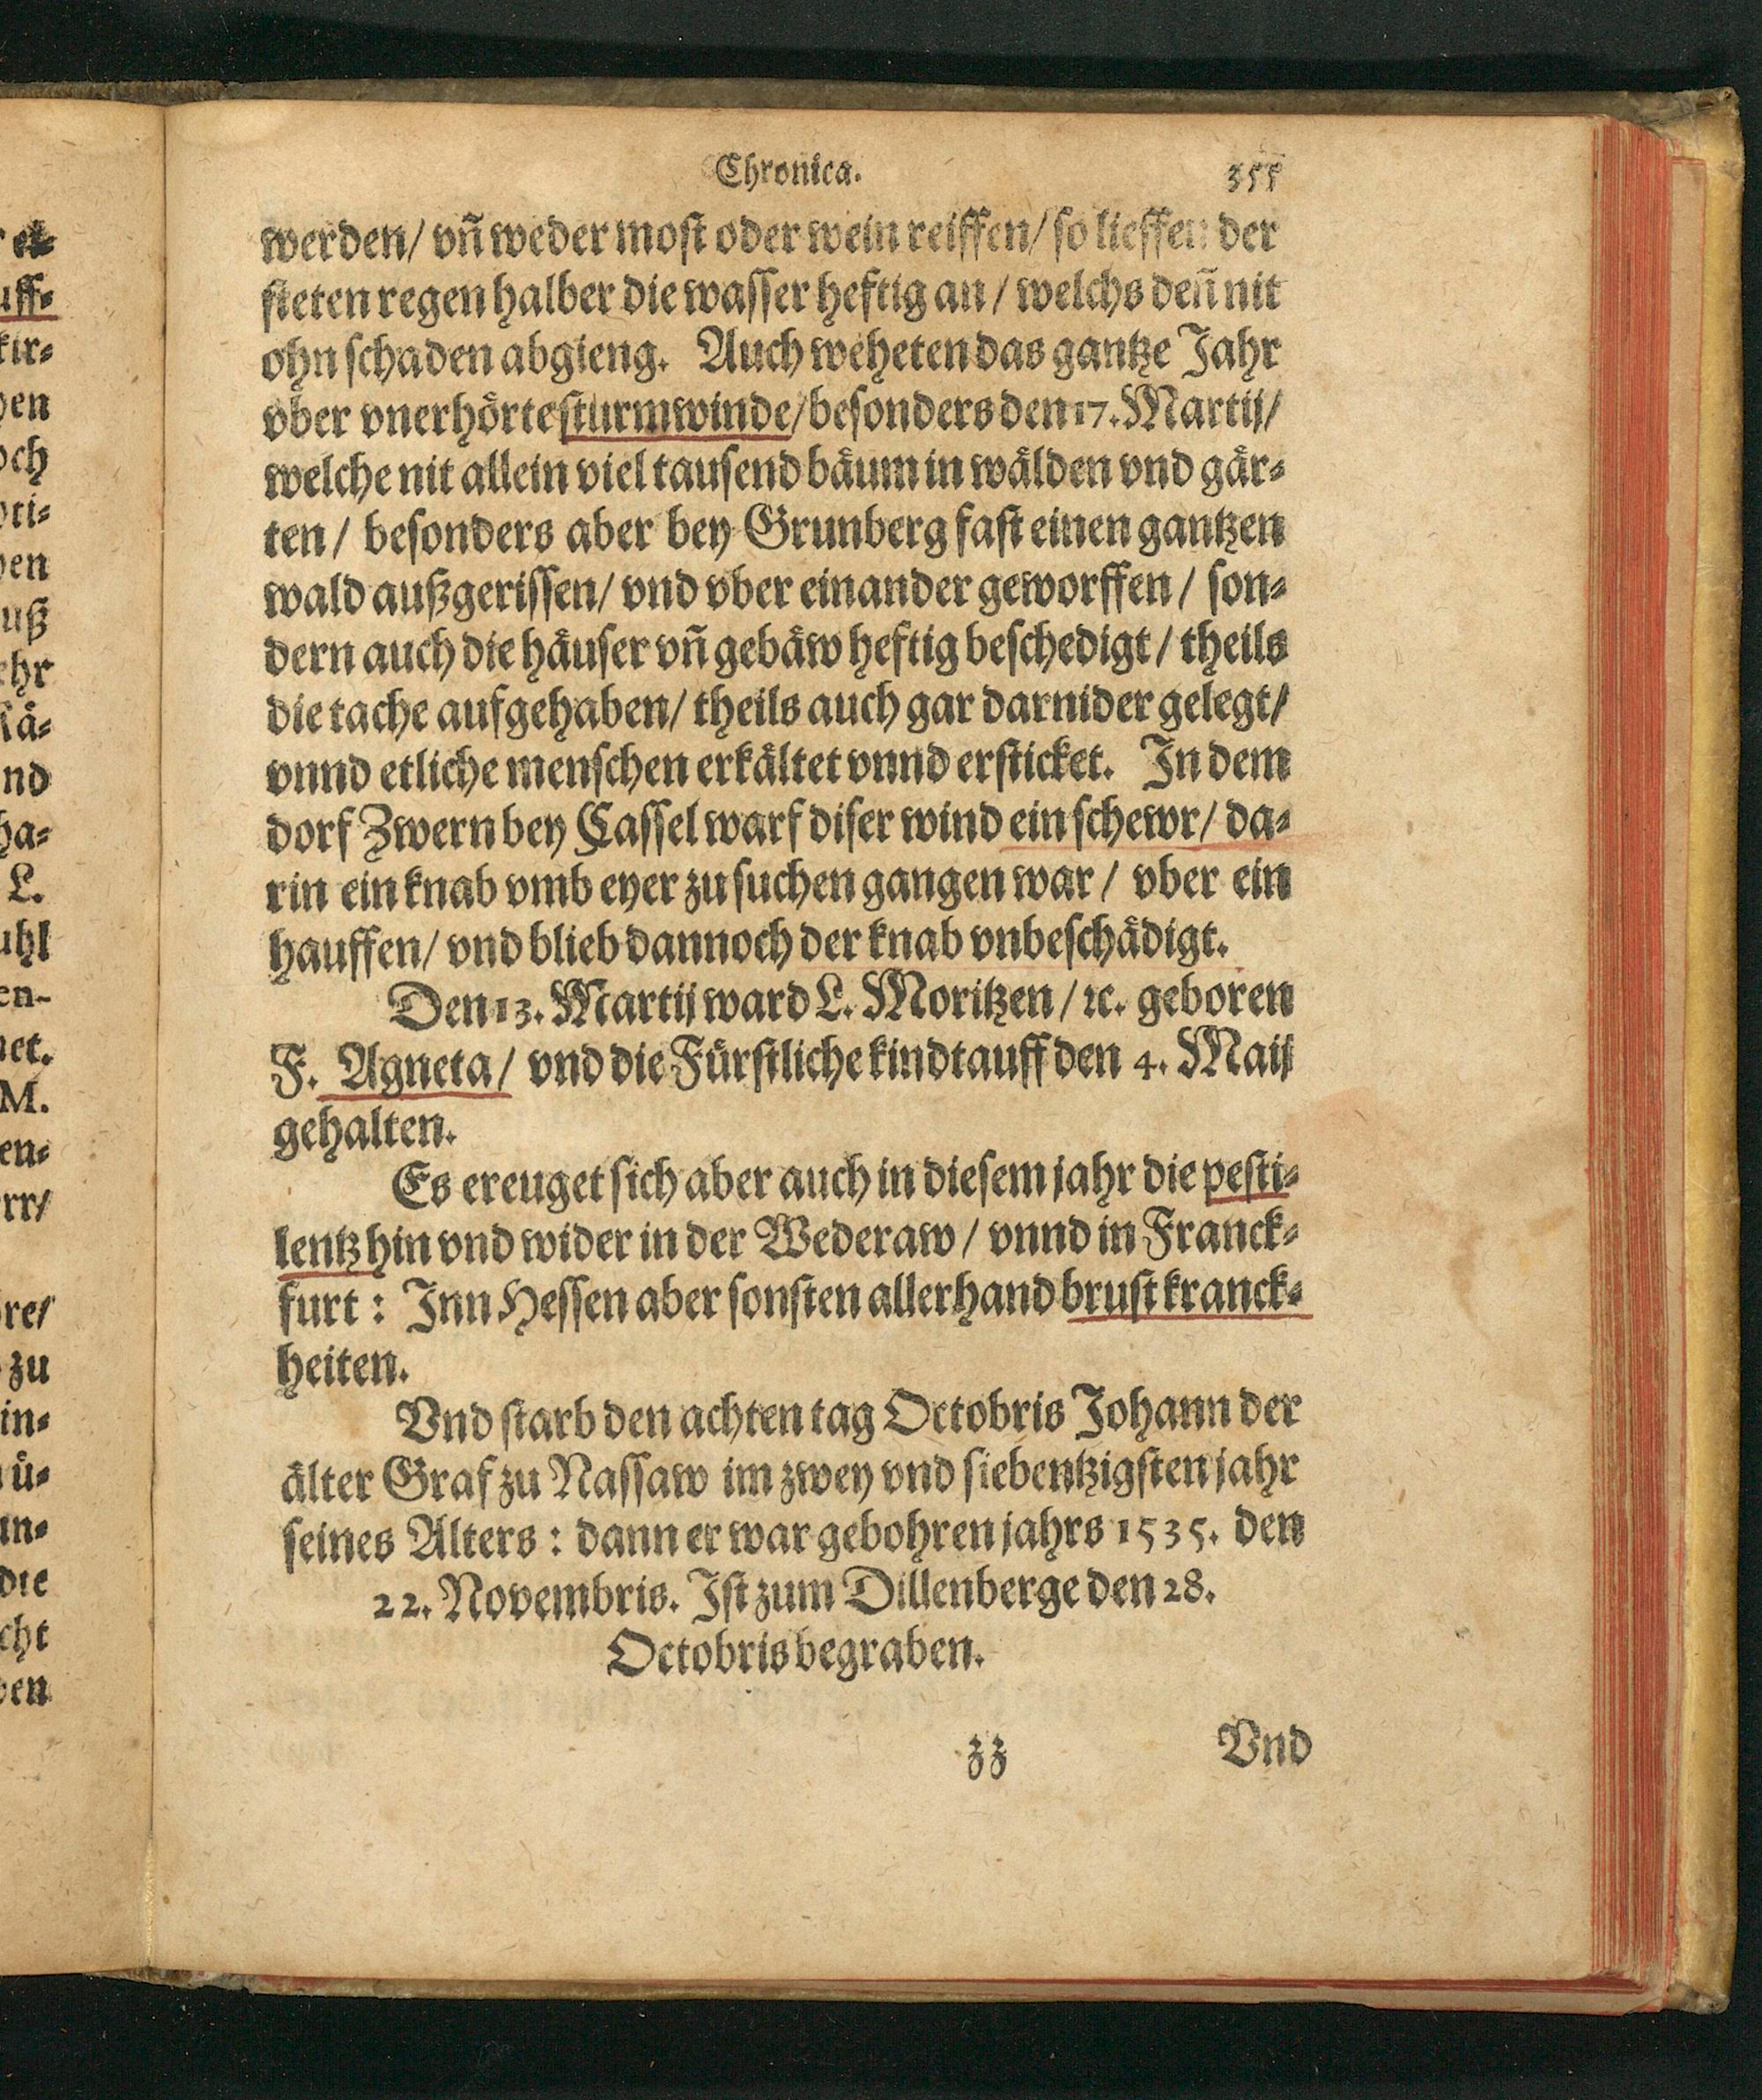 Chronica. 355
werden/ vn̄ weder most oder wein reiffen/ so lieffen der
steten regen halber die wasser heftig an / welchs den̄ nit
ohn schaden abgieng. Auch weheten das gantze Jahr
vber vnerhörte sturmwinde/ besonders den 17. Martij/
welche nit allein viel tausend bäum in wälden vnd gär-
ten / besonders aber bey Grunberg fast einen gantzen
wald außgerissen/ vnd vber einander geworffen / son-
dern auch die häuser vn̄ gebäw heftig beschedigt / theils
die tache aufgehaben/ theils auch gar darnider gelegt/
vnnd etliche menschen erkältet vnnd ersticket. In dem
dorf Zwern bey Cassel warf diser wind ein schewr/ da-
rin ein knab vmb eyer zu suchen gangen war / vber ein
hauffen/ vnd blieb dannoch der knab vnbeschädigt.
Den 13. Martij ward L. Moritzen / ꝛc. geboren
F. Agneta / vnd die Fürstliche kindtauff den 4. Maij
gehalten.
Es ereuget sich aber auch in diesem jahr die pesti-
lentz hin vnd wider in der Wederaw / vnnd in Franck-
furt : Inn Hessen aber sonsten allerhand brustkranck-
heiten.
Vnd starb den achten tag Octobris Johann der
älter Graf zu Nassaw im zwey vnd siebentzigsten jahr
seines Alters : dann er war gebohren jahrs 1535. den
22. Novembris. Ist zum Dillenberge den 28.
Octobris begraben.
zz Vnd